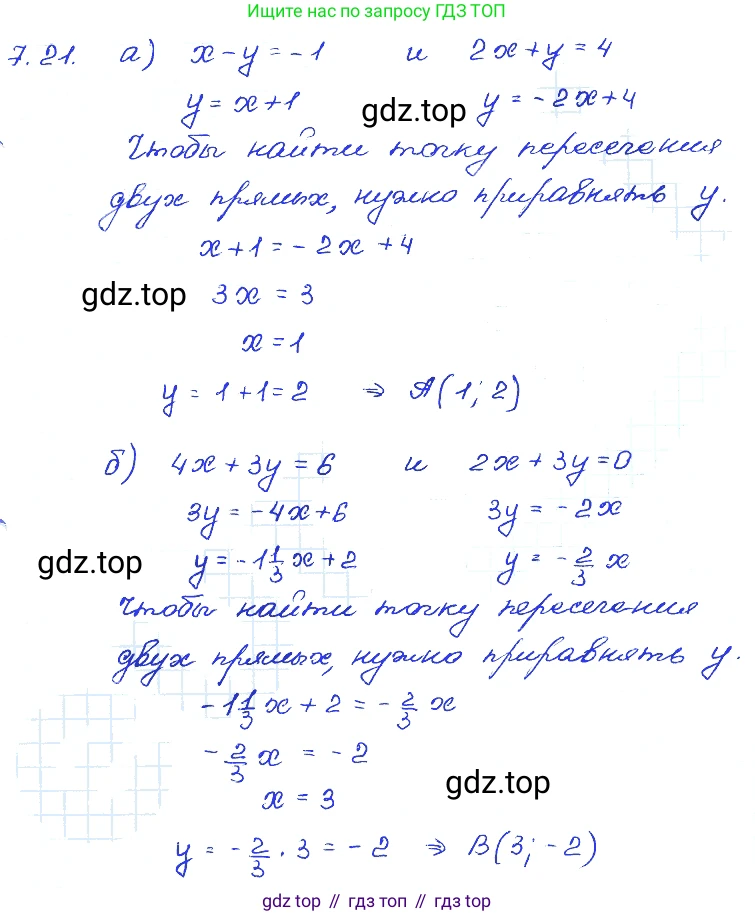 Еще нас находят по запросу ГДЗ ТОП
7.21. а) x - y = -1 и 2x + y = 4
y = x + 1 gdz.top y = -2x + 4
Чтобы найти точку пересечения
двух прямых, нужно приравнять y.
x + 1 = -2x + 4
gdz.top 3x = 3
x = 1
y = 1 + 1 = 2 ⇒ A(1; 2)
б) 4x + 3y = 6 и 2x + 3y = 0
3y = -4x + 6 3y = -2x
gdz.top y = -1 1/3 x + 2 y = -2/3 x
Чтобы найти точку пересечения
двух прямых, нужно приравнять y.
-1 1/3 x + 2 = -2/3 x
-2/3 x = -2
gdz.top
x = 3
y = -2/3 · 3 = -2 ⇒ B(3; -2)
gdz top // гдз топ // gdz.top